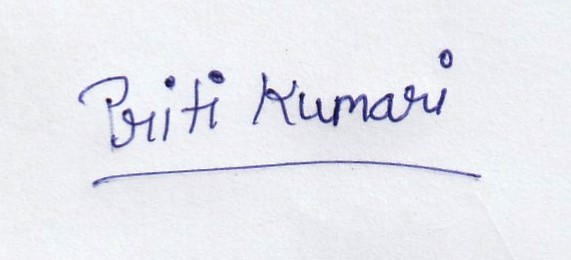 Priti Kumari